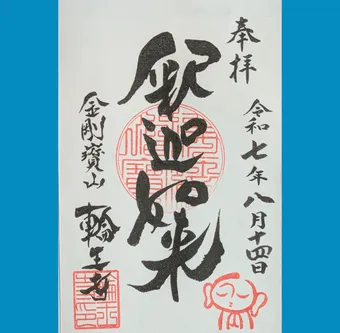 奉拝
令和七年八月十四日
釈迦如来
金剛寳山
輪王寺